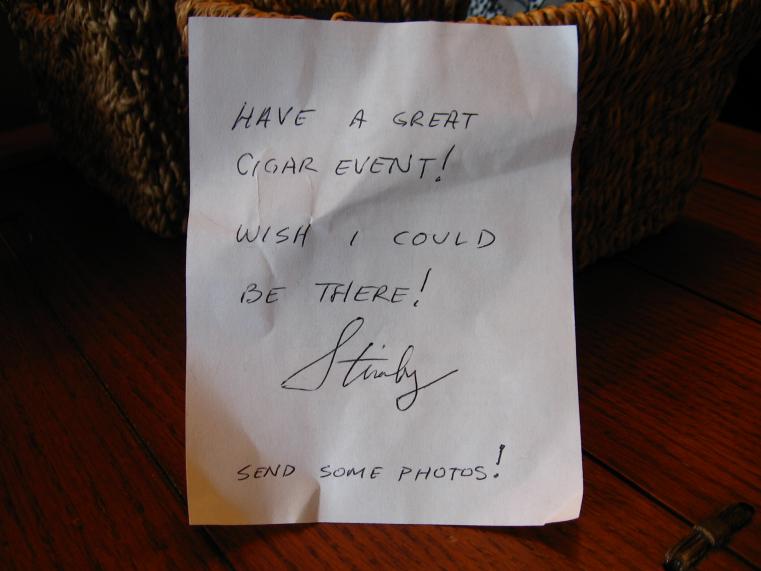 HAVE A GREAT
CIGAR EVENT!
WISH I COULD
BE THERE!
SEND SOME PHOTOS!